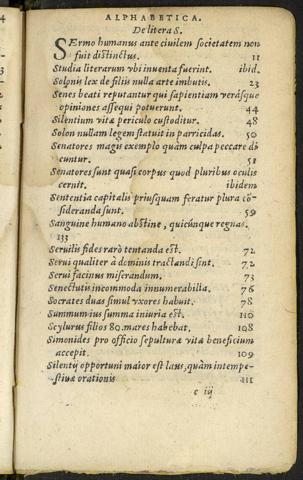 ALPHABETICA.
De litera S.
SErmo humanus ante ciuilem societatem non
fuit distinctus. 11
Studia literarum vbi inuenta fuerint. ibid.
Solonis lex de filiis nulla arte imbutis. 23
Senes beati reputantur qui sapientiam verásque
opiniones assequi potuerunt. 44
Silentium vitæ periculo custoditur. 48
Solon nullam legem statuit in parricidas. 50
Senatores magis exemplo quàm culpa peccare di
cuntur. 51
Senatores sunt quasi corpus quod pluribus oculis
cernit. ibidem
Sententia capitalis priusquam feratur plura cō-
sideranda sunt. 59
Sanguine humano abstine, quicúnque regnas.
133
Seruilis fides rarò tentanda est. 72
Serui qualiter à dominis tractandi sint. 72
Serui facinus miserandum. 73
Senectutis incommoda innumerabilia. 76
Socrates duas simul vxores habuit. 78
Summum ius summa iniuria est. 110
Scylurus filios 80. mares habebat. 108
Simonides pro officio sepulturæ vitæ beneficium
accepit. 109
Silentij opportuni maior est laus, quàm intempe-
stiuæ orationis 111
c iij